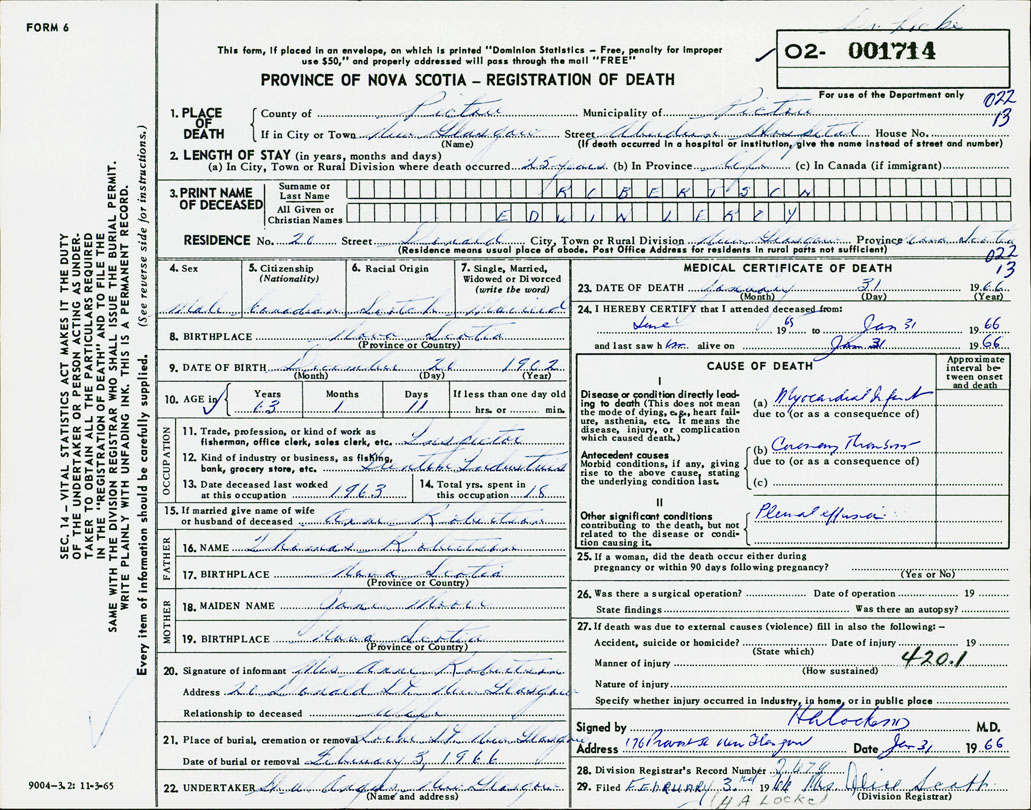 FORM 6
Dr. Locke
This form, if placed in an envelope, on which is printed "Dominion Statistics – Free, penalty for improper
use $50," and properly addressed will pass through the mail "FREE"
PROVINCE OF NOVA SCOTIA – REGISTRATION OF DEATH
✓ 02- 001714
For use of the Department only
022
13
SEC. 14 – VITAL STATISTICS ACT MAKES IT THE DUTY
OF THE UNDERTAKER OR PERSON ACTING AS UNDER-
TAKER TO OBTAIN ALL THE PARTICULARS REQUIRED
IN THE "REGISTRATION OF DEATH" AND TO FILE THE
SAME WITH THE DIVISION REGISTRAR WHO SHALL ISSUE THE BURIAL PERMIT.
WRITE PLAINLY WITH UNFADING INK. THIS IS A PERMANENT RECORD.
Every item of information should be carefully supplied. (See reverse side for instructions.)
1. PLACE OF DEATH
County of Pictou Municipality of Pictou
If in City or Town New Glasgow Street Aberdeen Hospital House No.
(Name) (If death occurred in a hospital or institution, give the name instead of street and number)
2. LENGTH OF STAY (in years, months and days)
(a) In City, Town or Rural Division where death occurred 25 years (b) In Province Life (c) In Canada (if immigrant)
3. PRINT NAME OF DECEASED
Surname or Last Name ROBERTSON
All Given or Christian Names EDWIN LERRY
RESIDENCE No. 20 Street Donald City, Town or Rural Division New Glasgow Province Nova Scotia
(Residence means usual place of abode. Post Office Address for residents in rural parts not sufficient)
022
13
4. Sex Male
5. Citizenship (Nationality) Canadian
6. Racial Origin Scotch
7. Single, Married, Widowed or Divorced (write the word) Married
8. BIRTHPLACE Nova Scotia
(Province or Country)
9. DATE OF BIRTH December 20 1902
(Month) (Day) (Year)
10. AGE in ✓ Years 63 Months 1 Days 11 If less than one day old hrs. or min.
OCCUPATION
11. Trade, profession, or kind of work as
fisherman, office clerk, sales clerk, etc. Inspector
12. Kind of industry or business, as fishing,
bank, grocery store, etc. Trenton Industries
13. Date deceased last worked at this occupation 1963
14. Total yrs. spent in this occupation 18
15. If married give name of wife
or husband of deceased Anne Robertson
FATHER
16. NAME Thomas Robertson
17. BIRTHPLACE Nova Scotia
(Province or Country)
MOTHER
18. MAIDEN NAME Jane
19. BIRTHPLACE Nova Scotia
(Province or Country)
20. Signature of informant Mrs. Anne Robertson
Address 20 Donald St. New Glasgow
Relationship to deceased Wife
21. Place of burial, cremation or removal St. New Glasgow
Date of burial or removal February 3, 1966
22. UNDERTAKER New Glasgow
(Name and address)
9004-3.2: 11-3-65
MEDICAL CERTIFICATE OF DEATH
23. DATE OF DEATH January 31 1966
(Month) (Day) (Year)
24. I HEREBY CERTIFY that I attended deceased from:
June 1965 to Jan 31 1966
and last saw him alive on Jan 31 1966
CAUSE OF DEATH
Approximate interval between onset and death
I
Disease or condition directly leading to death (This does not mean the mode of dying, e.g., heart failure, asthenia, etc. It means the disease, injury, or complication which caused death.)
(a) Myocardial Infarct
due to (or as a consequence of)
Antecedent causes
Morbid conditions, if any, giving rise to the above cause, stating the underlying condition last.
(b) Coronary Thrombosis
due to (or as a consequence of)
(c)
II
Other significant conditions
contributing to the death, but not related to the disease or condition causing it.
Pleural effusion
25. If a woman, did the death occur either during
pregnancy or within 90 days following pregnancy?
(Yes or No)
26. Was there a surgical operation? Date of operation 19
State findings Was there an autopsy?
27. If death was due to external causes (violence) fill in also the following: –
Accident, suicide or homicide? Date of injury 19
(State which)
Manner of injury 420.1
(How sustained)
Nature of injury
Specify whether injury occurred in Industry, in home, or in public place
Signed by HALocke MD M.D.
Address 176 Provost St New Glasgow Date Jan 31 1966
28. Division Registrar's Record Number
29. Filed FEBRUARY 3rd 1966 Mrs. Alice Scott
(H A Locke) (Division Registrar)